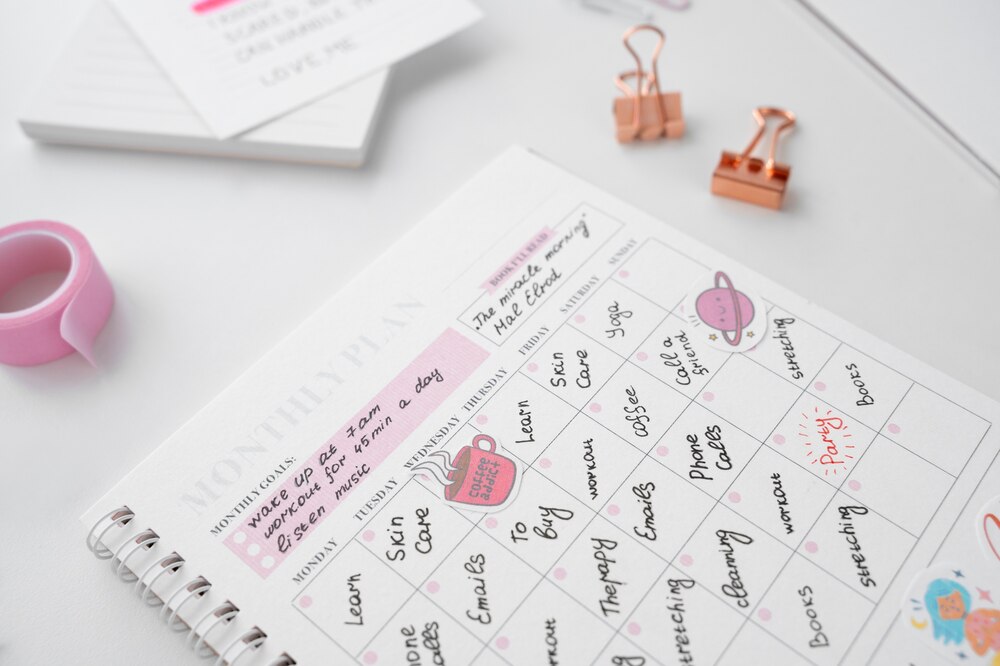 CAN HANDLE
LOVE, ME
MONTHLY PLAN
MONTHLY GOALS:
wake up at 7am
workout for 45 min a day
listen music
BOOK I'LL READ
"The miracle morning"
Mal Elrod
MONDAY TUESDAY WEDNESDAY THURSDAY FRIDAY SATURDAY SUNDAY
Learn
Skin
Care
coffee
addict
Learn
Skin
Care
Yoga
Emails
To
Buy
workout
coffee
Call a
friend
Therapy
Emails
Phone
Calls
stretching
stretching
cleaning
workout
Party
Books
Books
stretching